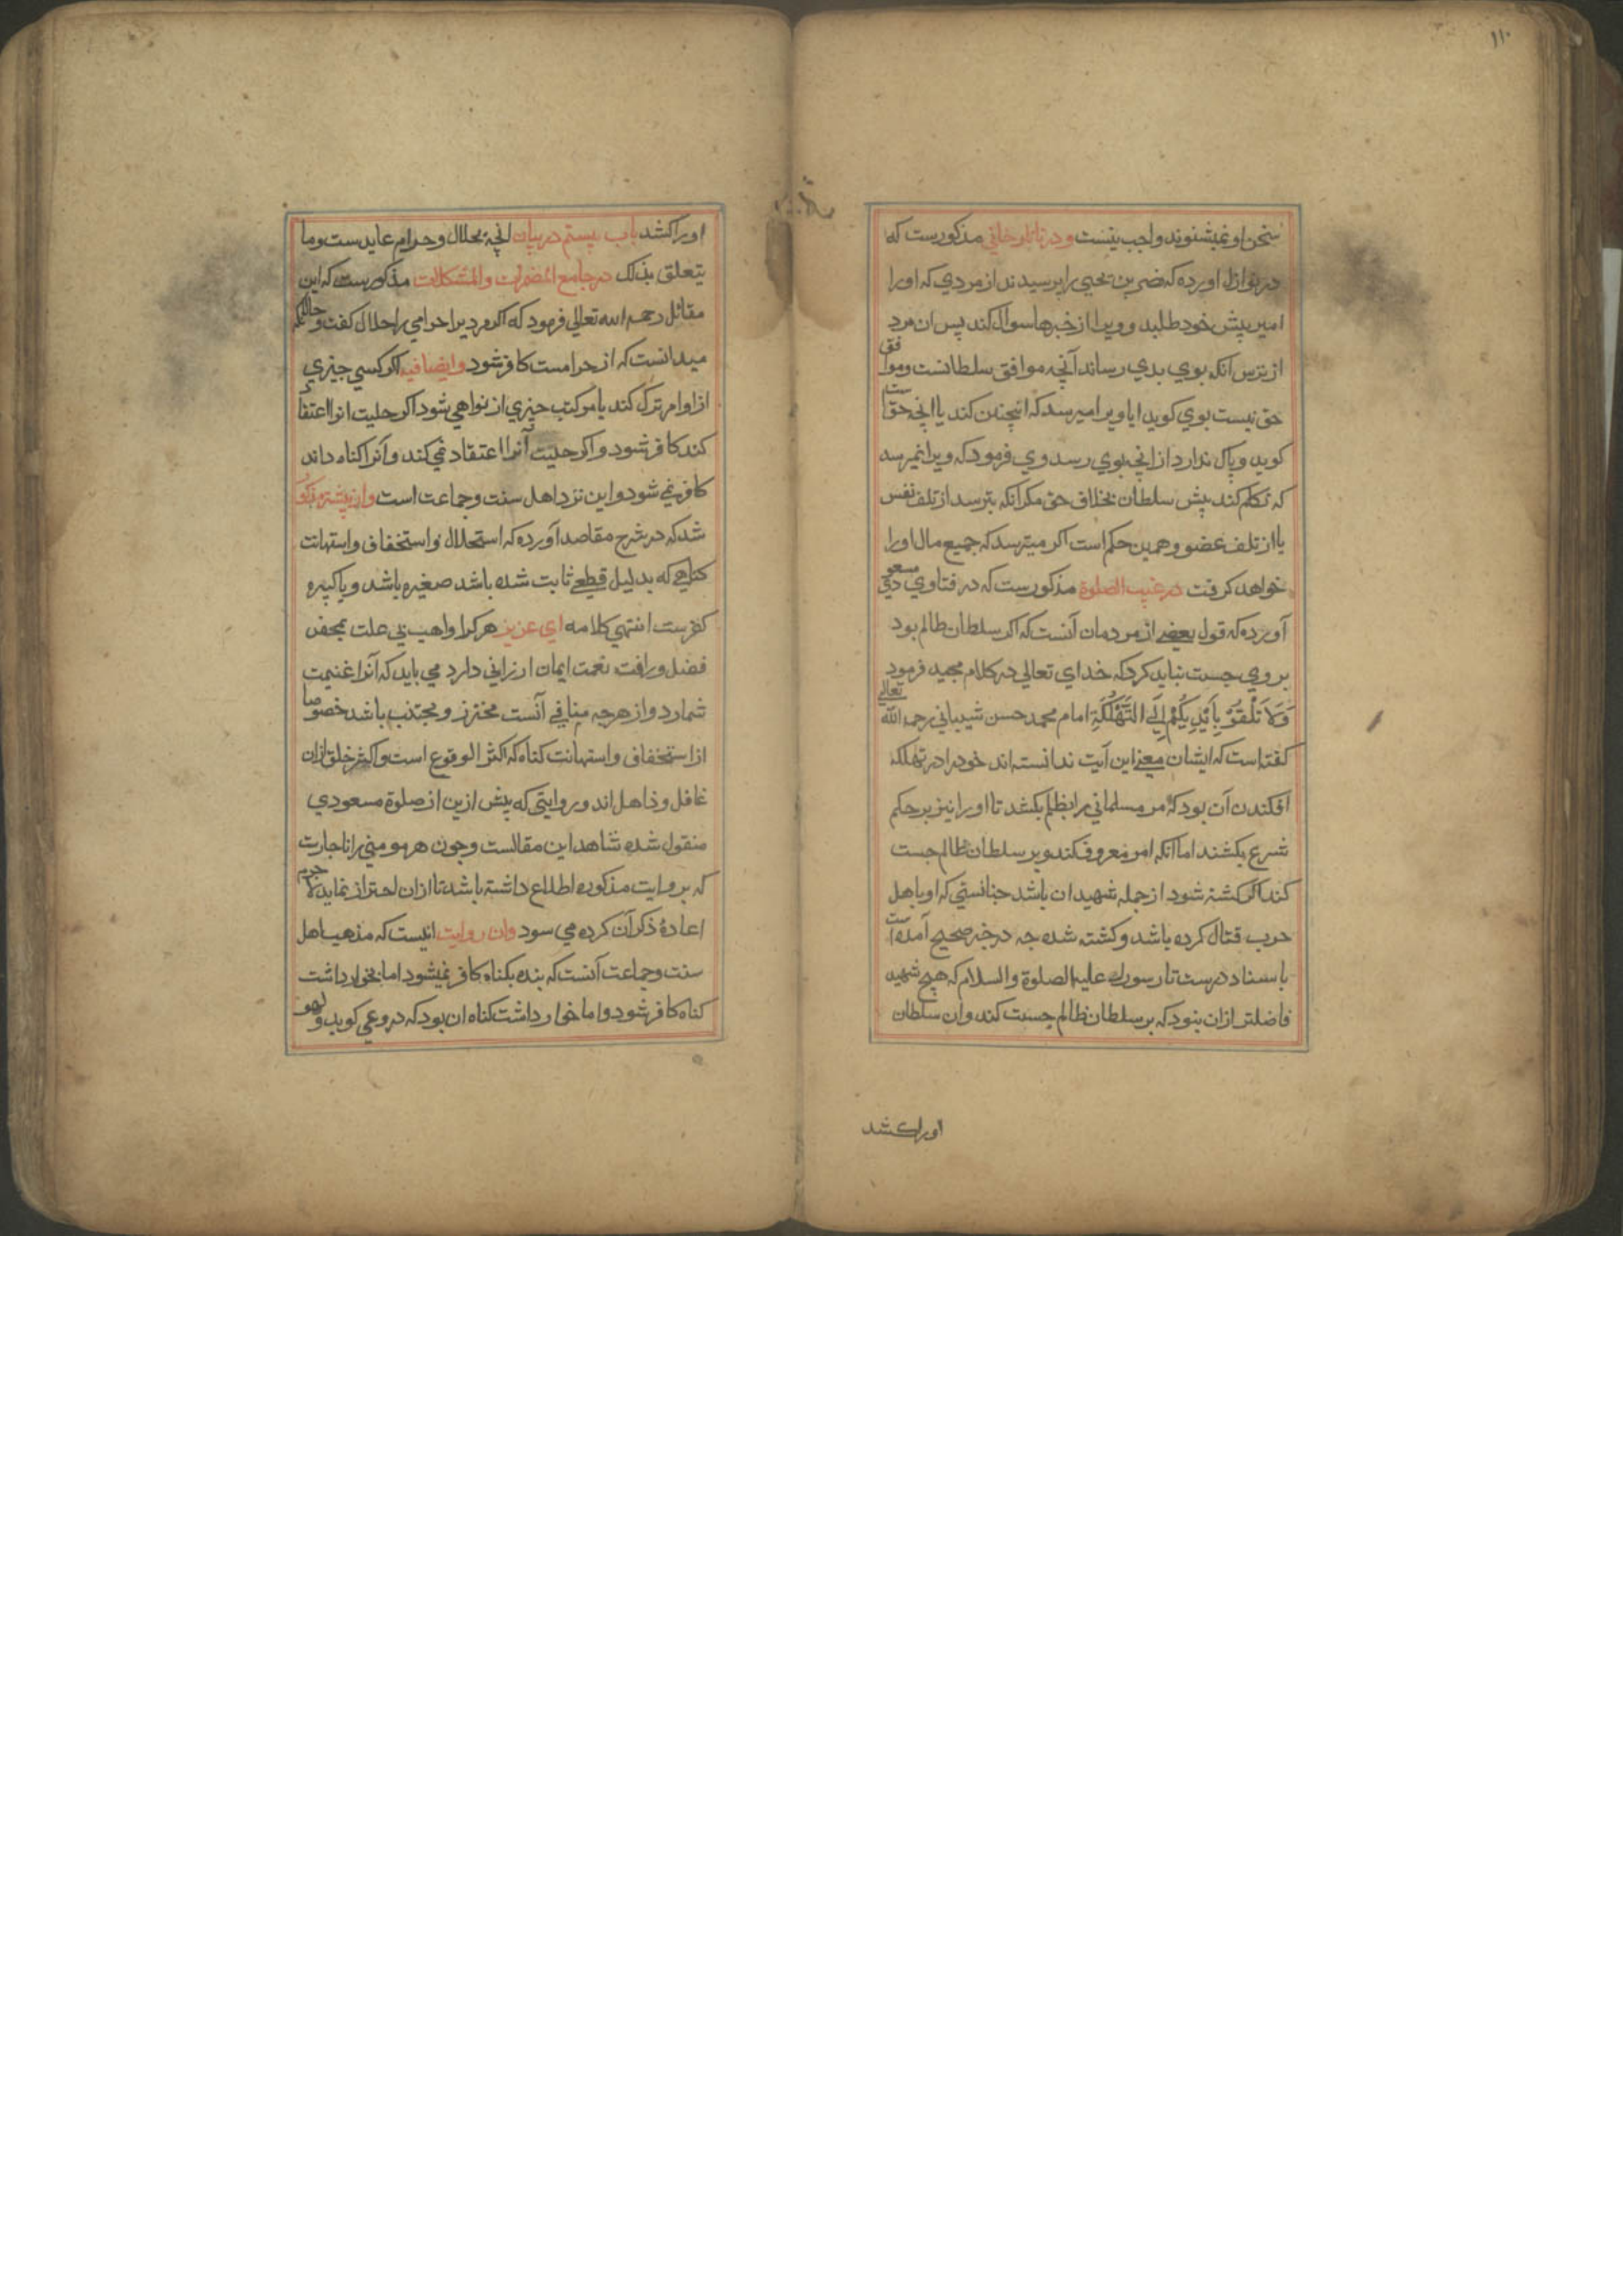 ۱۱۰
سخن او نمیشنوند واجب نیست و در تاتارخانی مذکورست که
در نوازل اورده که نصر بن یحیی را پرسیدند از مردی که او را
امیر پیش خود طلبد و ویرا از خبرها سوال کند پس ان مرد
از ترس انکه بوی بدی رساند آنچه موافق سلطانست و موافق
حق نیست بوی کوید ایا ویرا میرسد که اینچنین کند یا انچه حق ست
کوید و باک ندارد از انچه بوی رسد وی فرمود که ویرا نمیرسد
که تکلم کند پیش سلطان بخلاف حق مکر انکه بترسد از تلف نفس
یا از تلف عضو و همین حکم است اکر میترسد که جمیع مال او را
خواهد کرفت در غیب الصلوة مذکورست که در فتاوی مسعودی
آورده که قول بعضی از مردمان آنست که اکر سلطان ظالم بود
بر وی حسبت نباید کرد که خدای تعالی در کلام مجید فرمود
وَلَا تُلْقُوْ بِاَیْدِیْکُمْ اِلَی التَّهْلُکَةِ امام محمد حسن شیبانی رحمه الله تعالی
کفته است که ایشان معنی این آیت ندانسته اند خود را در تهلکه
افکندن آن بود که مر مسلمانی را بظلم بکشد تا او را نیز بر حکم
شرع بکشند اما انکه امر معروف کند و بر سلطان ظالم حسبت
کند اکر کشته شود از جمله شهیدان باشد چنانستی که او با هل
حرب قتال کرده باشد و کشته شده چه در خبر صحیح آمده است
باسناد درست تا رسول علیه الصلوة والسلام که هیچ شهید
فاضلتر ازان نبود که بر سلطان ظالم حسبت کند و ان سلطان
اورا کشد
اورا کشد باب بیستم در بیان انچه بحلال و حرام عایدست وما
یتعلق بذلک در جامع المضمرات والمشکلات مذکورست که ابن
مقاتل رحمه الله تعالی فرمود که اکر مردیرا حرامی را حلال کفت و حالانکه
میدانست که ان حرامست کافر شود وایضا فیه اکر کسی چیزی
از اوامر ترک کند یا مرتکب چیزی از نواهی شود اکر حلیت انرا اعتقاد
کند کافر شود و اکر حلیت آنرا اعتقاد نمی کند و آنرا کناه داند
کافر نمی شود و این نزد اهل سنت وجماعت است و از پیشتر مذکور
شد که در شرح مقاصد آورده که استحلال و استخفاف و استهانت
کناهی که بدلیل قطعی ثابت شده باشد صغیره باشد و یا کبیره
کفرست انتهی کلامه ای عزیز هر کرا واهب بی علت بمحض
فضل و رافت نعمت ایمان ارزانی دارد می باید که آنرا غنیمت
شمارد و از هرچه منافی آنست محترز و مجتنب باشد خصوصا
از استخفاف و استهانت کناه که اکثر الوقوع است و اکثر خلق ازان
غافل و ذاهل اند و روایتی که پیش ازین از صلوة مسعودی
منقول شده شاهد این مقالست و چون هر مومنی را ناچارست
که بر روایت مذکوره اطلاع داشته باشد تا ازان احتراز نماید لا جرم
اعادۀ ذکر آن کرده می سود وان روایت اینست که مذهب اهل
سنت و جماعت آنست که بنده بکناه کافر نمیشود اما بخوار داشت
کناه کافر شود و اما خوار داشت کناه ان بود که دروغی کوید و لهو